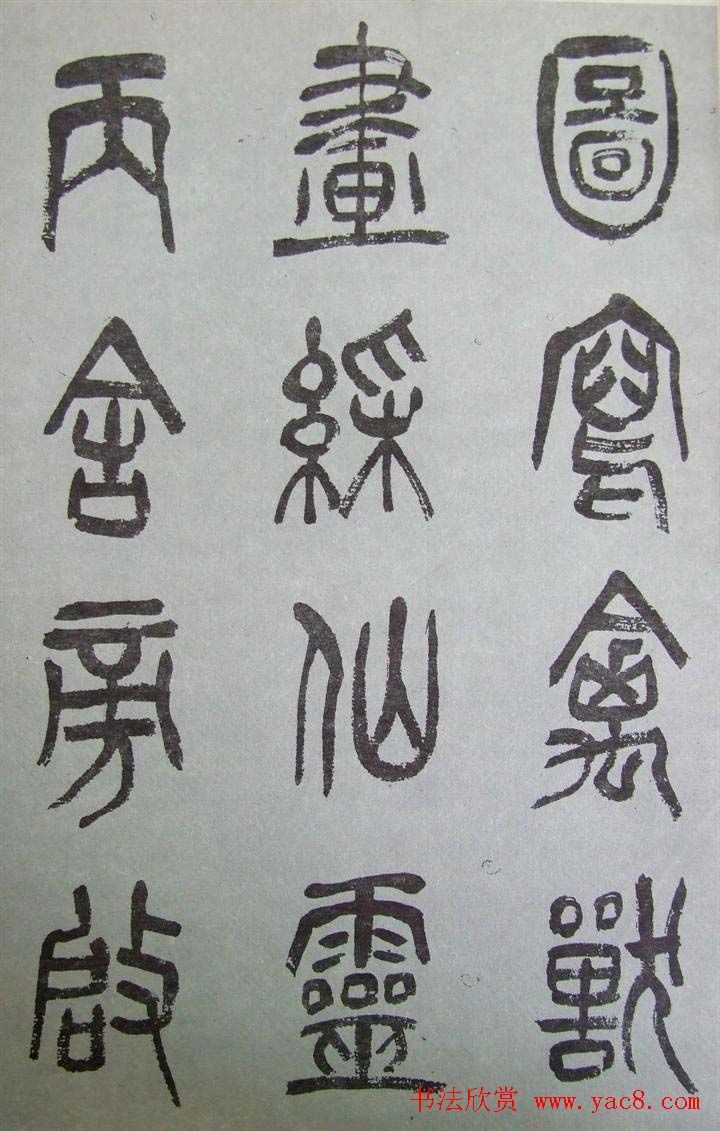 圖寫禽獸
畫綵仙靈
丙舍旁啟
书法欣赏 www.yac8.com